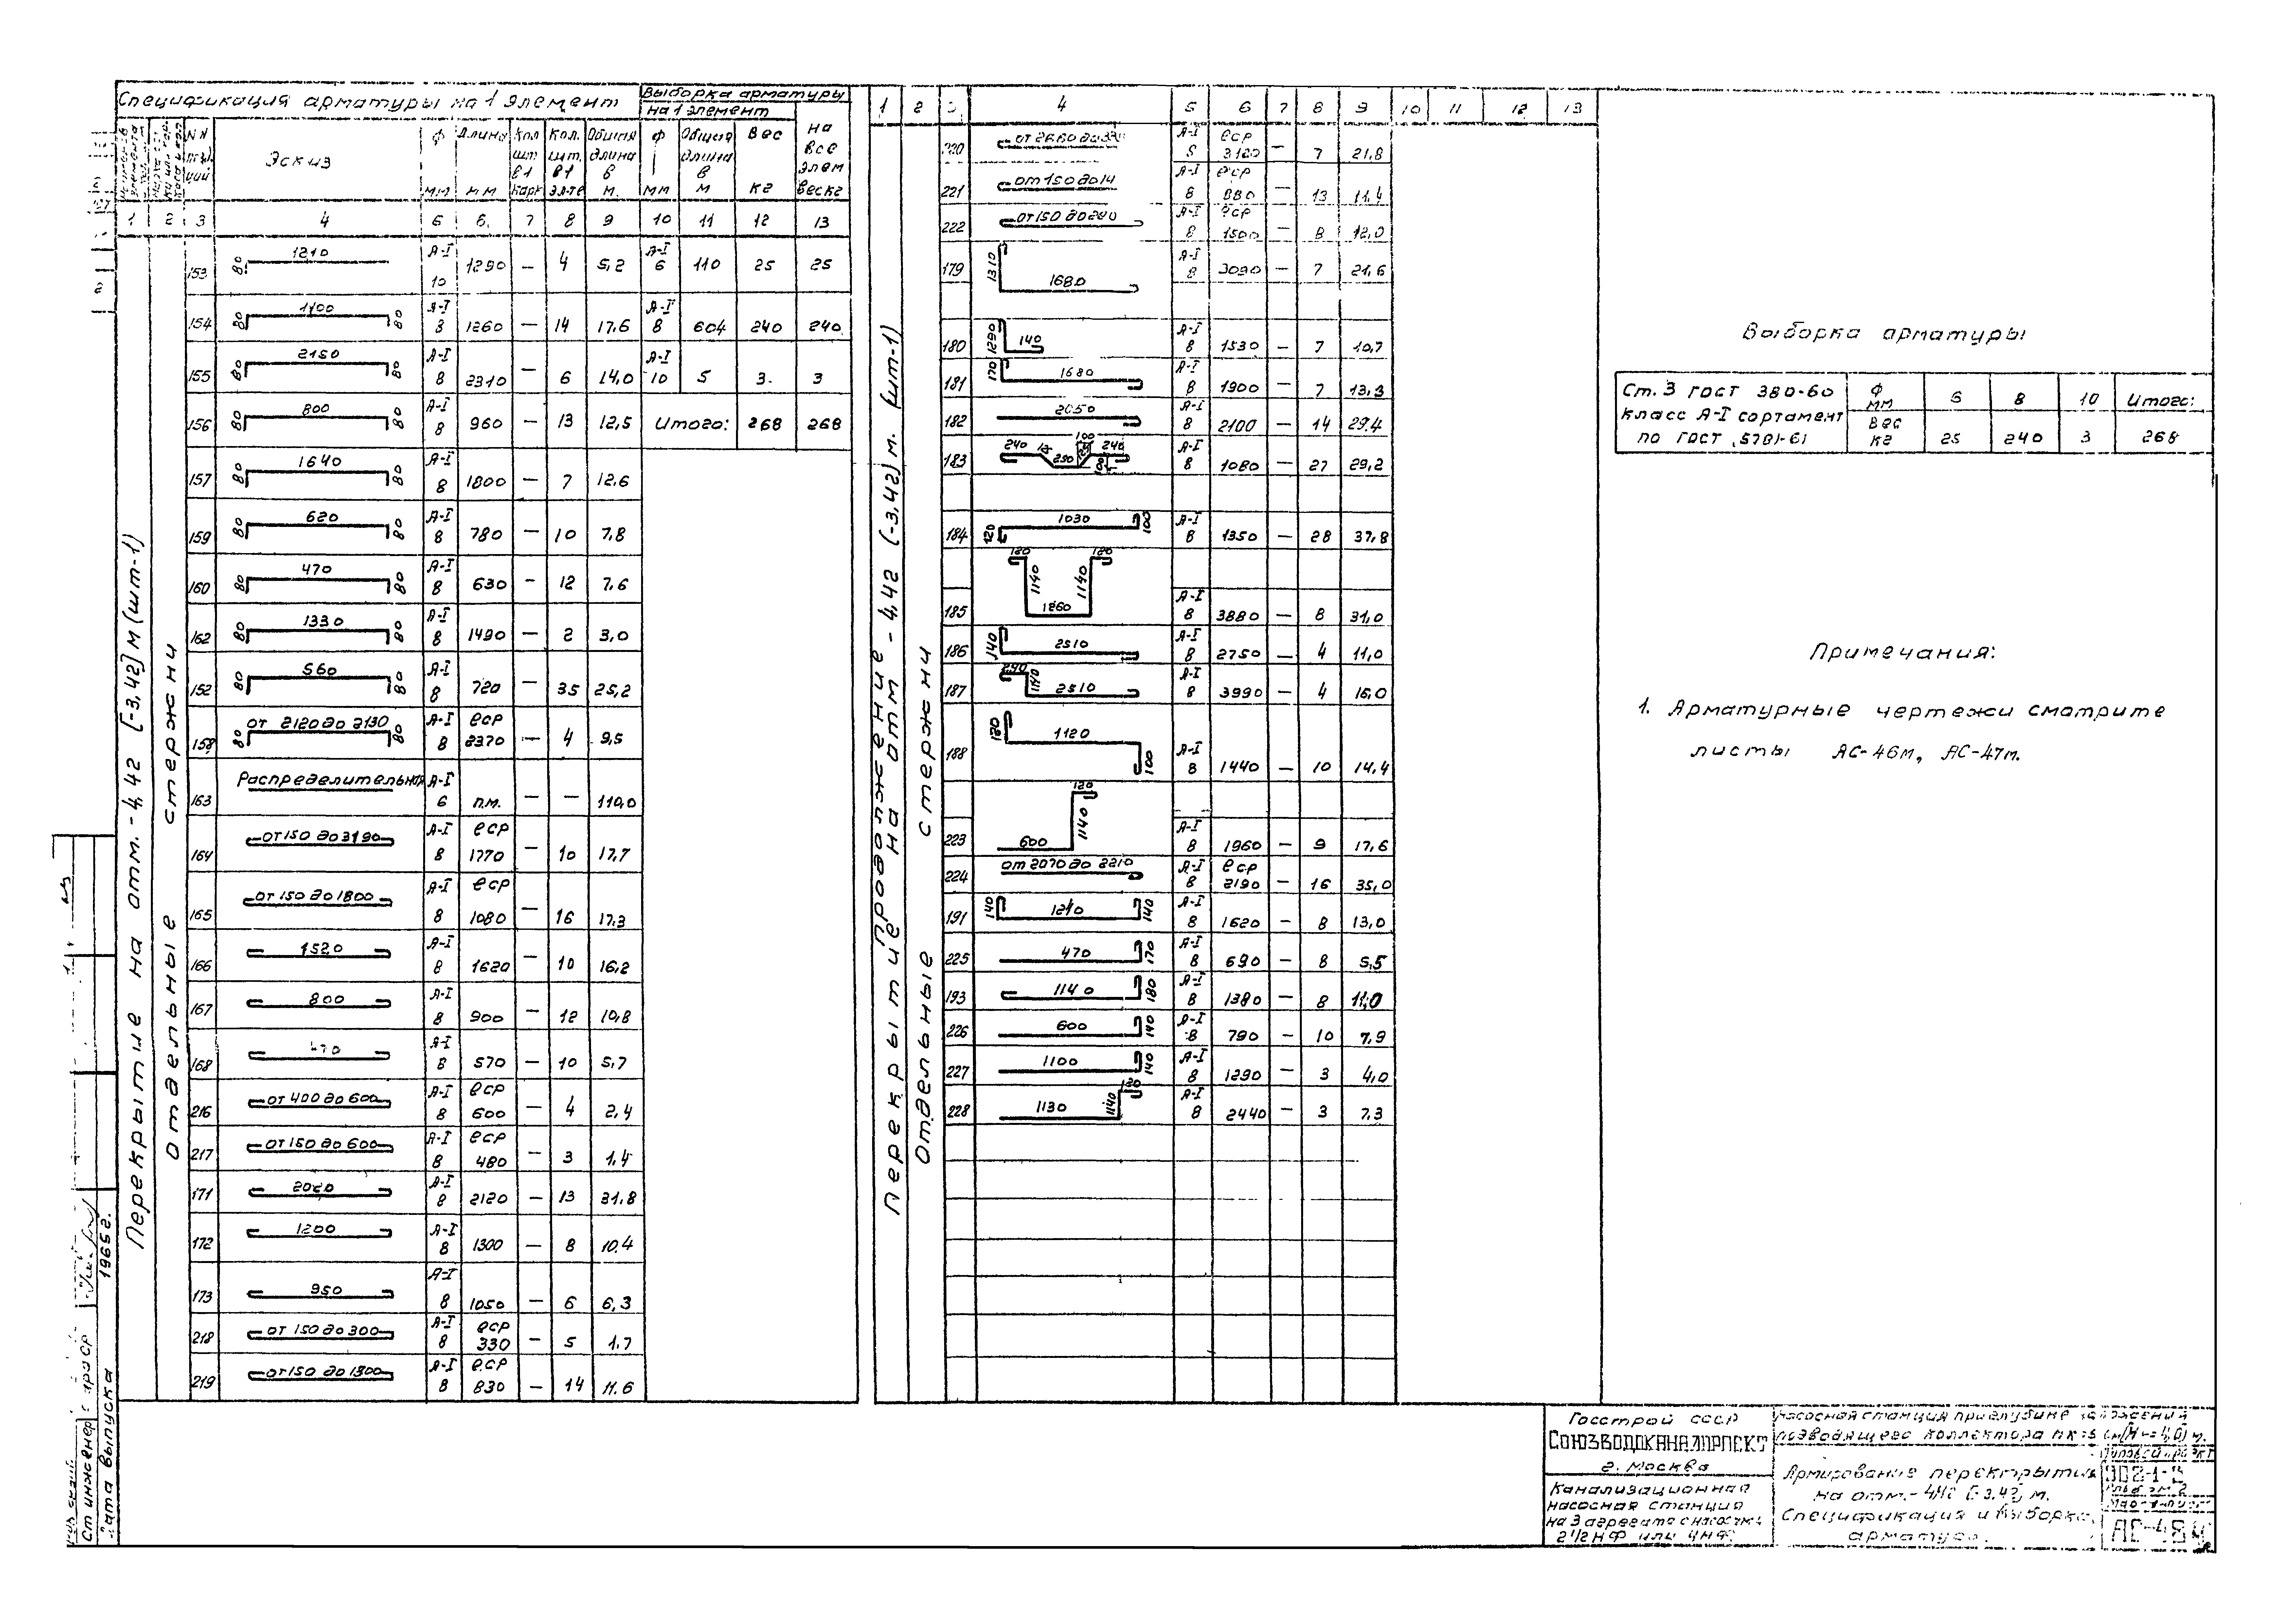 Спецификация арматуры на 1 элемент
Выборка арматуры
на 1 элемент
На все элем вес кг
NN позиций
Эскиз
Ф мм
Длина мм
Кол. шт. в 1 карк
Кол. шт. в 1 эл-те
Общая длина в м.
Ф мм
Общая длина в м
Вес кг
1 2 3 4 5 6. 7 8 9 10 11 12 13
Перекрытие на отм. -4,42 [-3,42] м (шт-1)
Отдельные стержни
153 80 1210 А-I 10 1290 — 4 5,2 А-I 6 110 25 25
154 80 1100 80 А-I 8 1260 — 14 17,6 А-I 8 604 240 240
155 80 2150 80 А-I 8 2310 — 6 14,0 А-I 10 5 3. 3
156 80 800 80 А-I 8 960 — 13 12,5 Итого: 268 268
157 80 1640 80 А-I 8 1800 — 7 12,6
159 80 620 80 А-I 8 780 — 10 7,8
160 80 470 80 А-I 8 630 — 12 7,6
162 80 1330 80 А-I 8 1490 — 2 3,0
152 80 560 80 А-I 8 720 — 35 25,2
158 80 от 2120 до 2130 80 А-I 8 ℓср 2370 — 4 9,5
163 Распределительная А-I 6 п.м. — — 110,0
164 от 150 до 3190 А-I 8 ℓср 1770 — 10 17,7
165 от 150 до 1800 А-I 8 ℓср 1080 — 16 17,3
166 1520 А-I 8 1620 — 10 16,2
167 800 А-I 8 900 — 12 10,8
168 470 А-I 8 570 — 10 5,7
216 от 400 до 600 А-I 8 ℓср 600 — 4 2,4
217 от 150 до 600 А-I 8 ℓср 480 — 3 1,4
171 2020 А-I 8 2120 — 13 31,8
172 1200 А-I 8 1300 — 8 10.4
173 950 А-I 8 1050 — 6 6,3
218 от 150 до 300 А-I 8 ℓср 330 — 5 1.7
219 от 150 до 1300 А-I 8 ℓср 830 — 14 11.6
1 2 3 4 5 6 7 8 9 10 11 12 13
Перекрытие на отм -4,42 (-3,42) м. (шт-1)
Продолжение
Отдельные стержни
220 А-I ℓср 3120 — 7 21,8
221 А-I 8 ℓср 880 — 13 11,4
222 от 150 до 240 А-I 8 ℓср 1500 — 8 12,0
179 1310 1680 А-I 8 3090 — 7 21,6
180 1290 140 А-I 8 1530 — 7 10,7
181 170 1680 А-I 8 1900 — 7 13,3
182 2050 А-I 8 2100 — 14 29.4
183 240 250 100 240 А-I 8 1080 — 27 29,2
184 120 1030 100 А-I 8 1350 — 28 37,8
185 120 1140 1260 1140 120 А-I 8 3880 — 8 31,0
186 140 2510 А-I 8 2750 — 4 11,0
187 240 1140 2510 А-I 8 3990 — 4 16,0
188 120 1120 100 А-I 8 1440 — 10 14,4
223 600 1140 120 А-I 8 1960 — 9 17,6
224 от 2070 до 2210 А-I 8 ℓср 2190 — 16 35,0
191 140 1240 140 А-I 8 1620 — 8 13,0
225 470 170 А-I 8 690 — 8 5,5
193 1140 180 А-I 8 1380 — 8 11,0
226 600 140 А-I 8 790 — 10 7,9
227 1100 140 А-I 8 1290 — 3 4,0
228 1130 1140 120 А-I 8 2440 — 3 7.3
Выборка арматуры
Ст. 3 ГОСТ 380-60
класс А-I сортамент
по ГОСТ 5781-61
Ф мм 6 8 10 Итого:
Вес кг 25 240 3 268
Примечания:
1. Арматурные чертежи смотрите
листы АС-46м, АС-47м.
Госстрой СССР
Союзводоканалпроект
г. Москва
Канализационная
насосная станция
на 3 агрегата с насосами
2 1/2 НФ или 4НФ.
Насосная станция при глубине заложения
подводящего коллектора
Армирование перекрытия
на отм. -4,42 [-3,42] м.
Спецификация и выборка
арматуры.
Типовой проект
902-1-3
АС-48м
Ст инженер
Дата выпуска 1965 г.